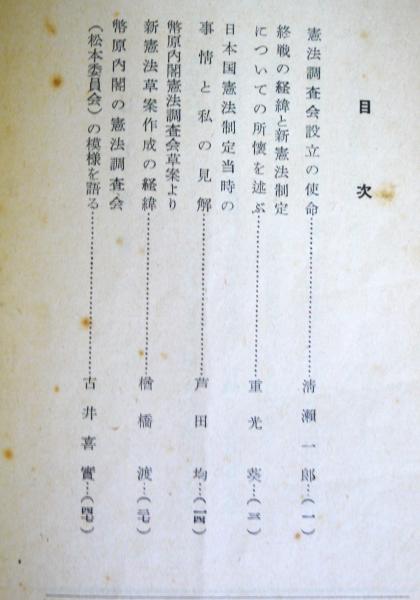 目次
憲法調査会設立の使命……………………清瀬一郎…(一)
終戦の経緯と新憲法制定
についての所懐を述ぶ……………………重光葵…(三)
日本国憲法制定当時の
事情と私の見解……………………芦田均…(一四)
幣原内閣憲法調査会草案より
新憲法草案作成の経緯……………………楢橋渡…(三七)
幣原内閣の憲法調査会
(松本委員会)の模様を語る……………………古井喜實…(四七)